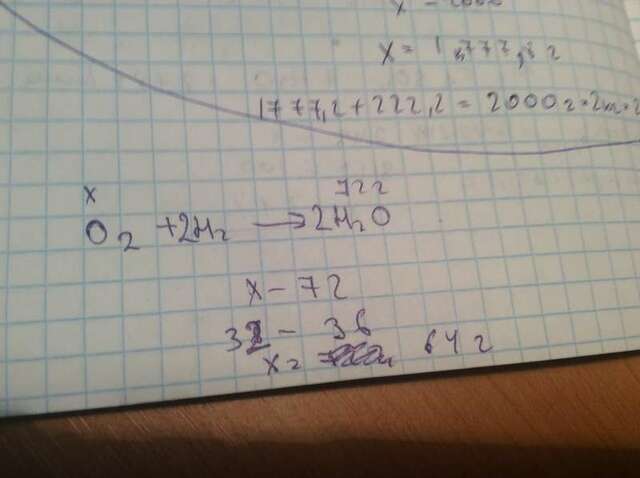 x – 2000
x = 1,777,8 г
1777,2 + 222,2 = 2000г = 2кг = 2
x 72г
O2 + 2H2 → 2H2O
x – 72
32 – 36
x = 64 г